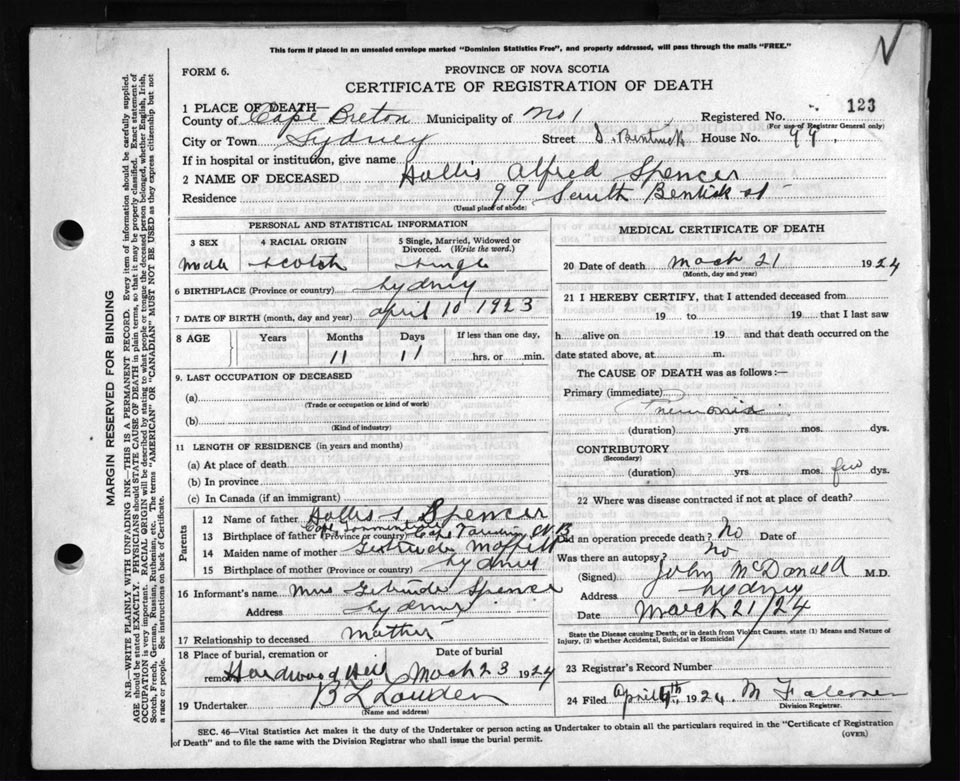 This form if placed in an unsealed envelope marked "Dominion Statistics Free", and properly addressed, will pass through the mails "FREE."
FORM 6.
PROVINCE OF NOVA SCOTIA
CERTIFICATE OF REGISTRATION OF DEATH
123
1 PLACE OF DEATH—
County of Cape Breton Municipality of No 1 Registered No.
(For use of Registrar General only)
City or Town Sydney Street S. Bentinck House No. 99.
If in hospital or institution, give name
2 NAME OF DECEASED Hollis Alfred Spencer
Residence 99 South Bentick st
(Usual place of abode)
PERSONAL AND STATISTICAL INFORMATION
3 SEX 4 RACIAL ORIGIN 5 Single, Married, Widowed or Divorced. (Write the word.)
Male Scotch Single
6 BIRTHPLACE (Province or country) Sydney
7 DATE OF BIRTH (month, day and year) April 10 1923
8 AGE Years Months Days If less than one day,
11 11 hrs. or min.
9. LAST OCCUPATION OF DECEASED
(a)
(Trade or occupation or kind of work)
(b)
(Kind of industry)
11 LENGTH OF RESIDENCE (in years and months)
(a) At place of death
(b) In province
(c) In Canada (if an immigrant)
Parents
12 Name of father Hollis S Spencer
Cape Tormentine
13 Birthplace of father (Province or country) N.B
14 Maiden name of mother Gertrude
15 Birthplace of mother (Province or country) Sydney
16 Informant's name Mrs Gertrude Spencer
Address Sydney
17 Relationship to deceased Mother
18 Place of burial, cremation or removal Date of burial
Hardwood Hill Mach 23 1924
19 Undertaker B L
(Name and address)
MEDICAL CERTIFICATE OF DEATH
20 Date of death Mach 21 1924
(Month, day and year)
21 I HEREBY CERTIFY, that I attended deceased from
19 to 19 that I last saw
h alive on 19 and that death occurred on the
date stated above, at m.
The CAUSE OF DEATH was as follows:—
Primary (immediate)
(duration) yrs. mos. dys.
CONTRIBUTORY
(Secondary)
(duration) yrs. mos. few dys.
22 Where was disease contracted if not at place of death?
Did an operation precede death? No Date of
Was there an autopsy? No
(Signed) John McDonald M.D.
Address Sydney
Date March 21/24
State the Disease causing Death, or in death from Violent Causes, state (1) Means and Nature of
Injury, (2) whether Accidental, Suicidal or Homicidal
23 Registrar's Record Number
24 Filed April 1924. M
Division Registrar.
SEC. 46—Vital Statistics Act makes it the duty of the Undertaker or person acting as Undertaker to obtain all the particulars required in the "Certificate of Registration
of Death" and to file the same with the Division Registrar who shall issue the burial permit.
(OVER)
MARGIN RESERVED FOR BINDING
N.B.—WRITE PLAINLY WITH UNFADING INK—THIS IS A PERMANENT RECORD. Every item of information should be carefully supplied.
AGE should be stated EXACTLY. PHYSICIANS should STATE CAUSE OF DEATH in plain terms, so that it may be properly classified. Exact statement of
OCCUPATION is very important. RACIAL ORIGIN will be described by stating to what people or tongue the deceased person belonged, whether English, Irish,
Scotch, French, German, Russian, Ruthenian, etc. The terms "AMERICAN" OR "CANADIAN" MUST NOT BE USED as they express citizenship but not
a race or people. See instructions on back of Certificate.